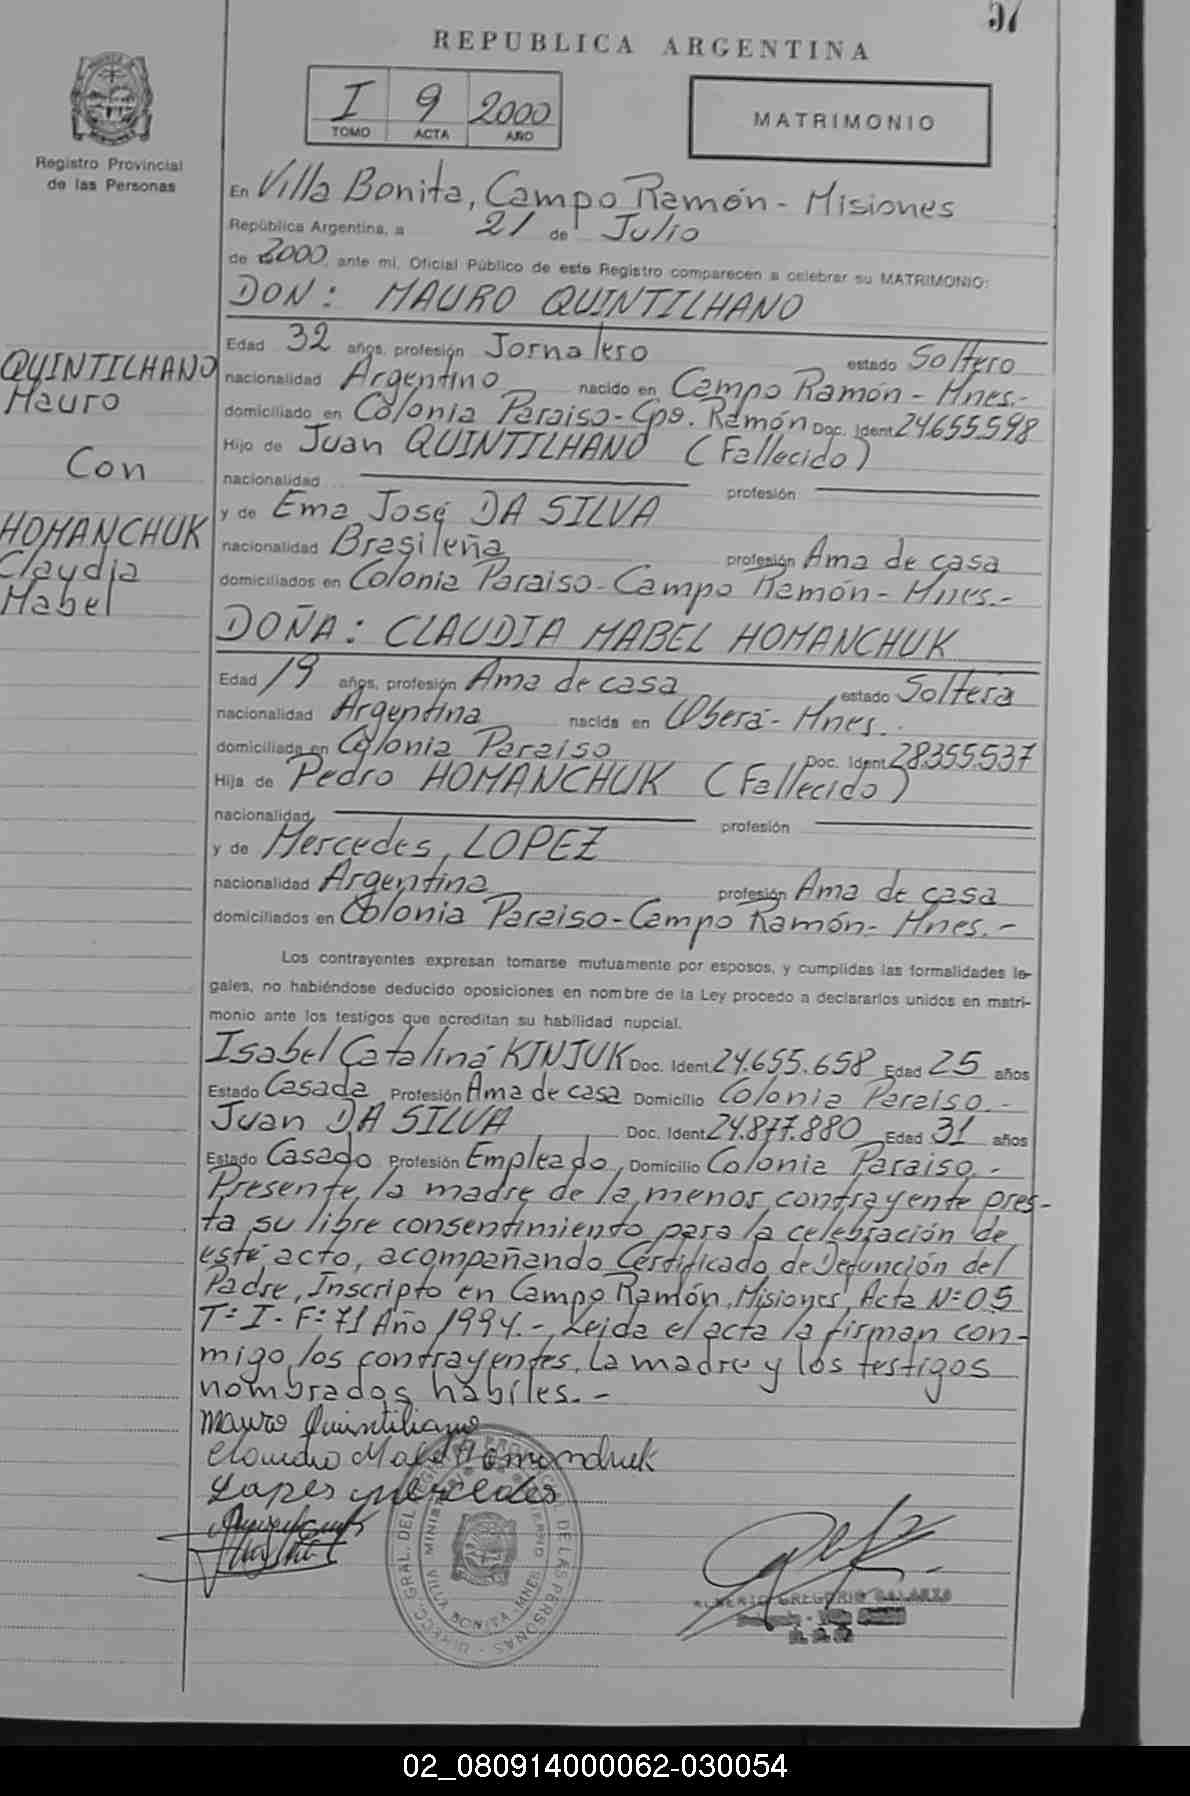 57
REPUBLICA ARGENTINA
I 9 2000
TOMO ACTA AÑO
MATRIMONIO
Registro Provincial
de las Personas
En Villa Bonita, Campo Ramón - Misiones
República Argentina, a 21 de Julio
de 2000, ante mi, Oficial Público de este Registro comparecen a celebrar su MATRIMONIO:
DON: MAURO QUINTILHANO
Edad 32 años, profesión Jornalero estado Soltero
nacionalidad Argentino nacido en Campo Ramón - Mnes.-
domiciliado en Colonia Paraiso - Cpo. Ramón Doc. Ident. 24655598
Hijo de Juan QUINTILHANO (Fallecido)
nacionalidad profesión
y de Ema José DA SILVA
nacionalidad Brasileña profesión Ama de casa
domiciliados en Colonia Paraiso - Campo Ramón - Mnes.-
QUINTILHANO
Mauro
Con
HOMANCHUK
Claudia
Mabel
DOÑA: CLAUDIA MABEL HOMANCHUK
Edad 19 años, profesión Ama de casa estado Soltera
nacionalidad Argentina nacida en Oberá - Mnes.
domiciliada en Colonia Paraiso Doc. Ident. 28355537
Hija de Pedro HOMANCHUK (Fallecido)
nacionalidad profesión
y de Mercedes, LOPEZ
nacionalidad Argentina profesión Ama de casa
domiciliados en Colonia Paraiso - Campo Ramón - Mnes.-
Los contrayentes expresan tomarse mutuamente por esposos, y cumplidas las formalidades le-
gales, no habiéndose deducido oposiciones en nombre de la Ley procedo a declararlos unidos en matri-
monio ante los testigos que acreditan su habilidad nupcial.
Isabel Catalina KINJUK Doc. Ident. 24.655.658 Edad 25 años
Estado Casada Profesión Ama de casa Domicilio Colonia Paraiso.-
Juan DA SILVA Doc. Ident. 24.877.880 Edad 31 años
Estado Casado Profesión Empleado, Domicilio Colonia Paraiso.-
Presente, la madre de la menor contrayente pres-
ta su libre consentimiento para la celebración de
este acto, acompañando Certificado de Defunción del
Padre, Inscripto en Campo Ramón, Misiones, Acta Nº 05
Tº I - Fº 71 Año 1994.-, Leida el acta la firman con-
migo, los contrayentes, la madre y los testigos
nombrados habiles.-
Mauro Quintiliano
Claudia Mabel Homanchuk
Lopes Mercedes
DIRECC. GRAL. DEL REGISTRO PROVINCIAL DE LAS PERSONAS
VILLA BONITA - MNES
ALBERTO GREGORIO GALARZA
02_080914000062-030054